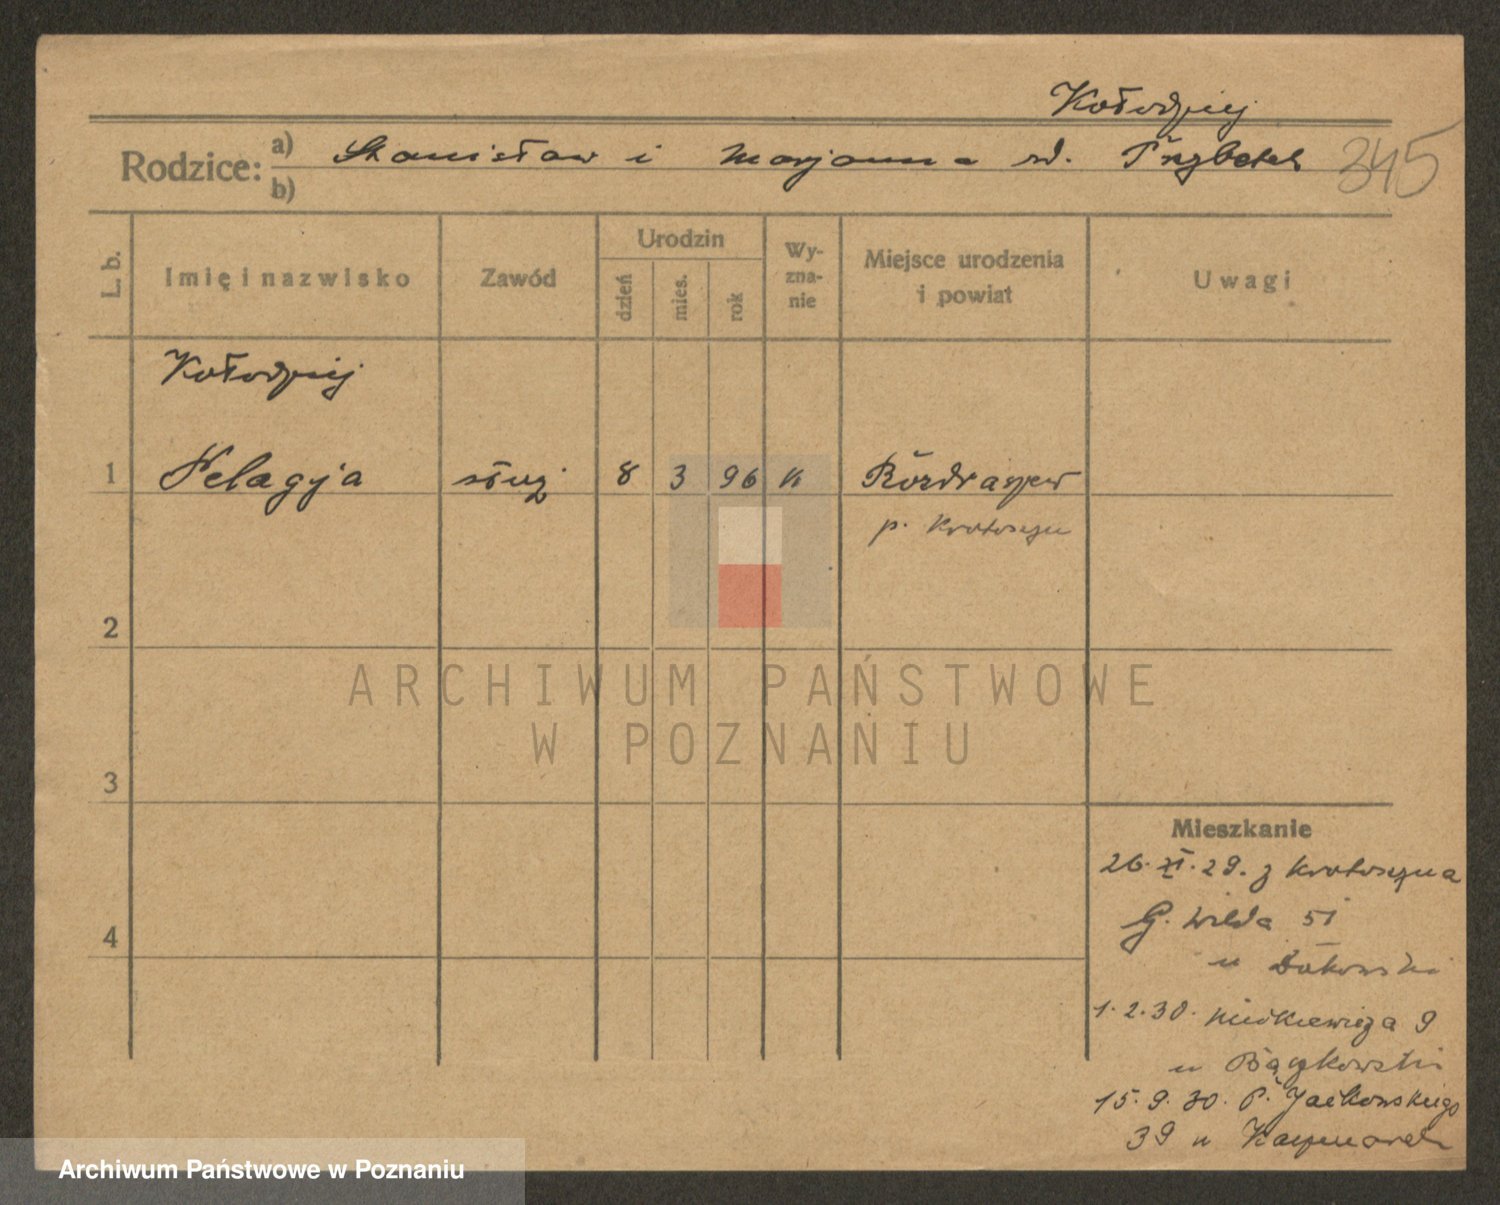 Kołodziej
Rodzice: a) Stanisław i Marjanna zd. Przybyłek
b)
345
L. b.
Imię i nazwisko
Zawód
Urodzin
dzień
mies.
rok
Wy-
zna-
nie
Miejsce urodzenia
i powiat
Uwagi
Kołodziej
1 Pelagja służ 8 3 96 k Rozdrażew
p. Krotoszyn
2
3
4
ARCHIWUM PAŃSTWOWE
W POZNANIU
Mieszkanie
26. XI. 29. z Krotoszyna
G. Wilda 51
u
1. 2. 30. Mickiewicza 9
u Bączkowski
15. 9. 30. P. Jackowskiego
39 u Kaczmarek
Archiwum Państwowe w Poznaniu